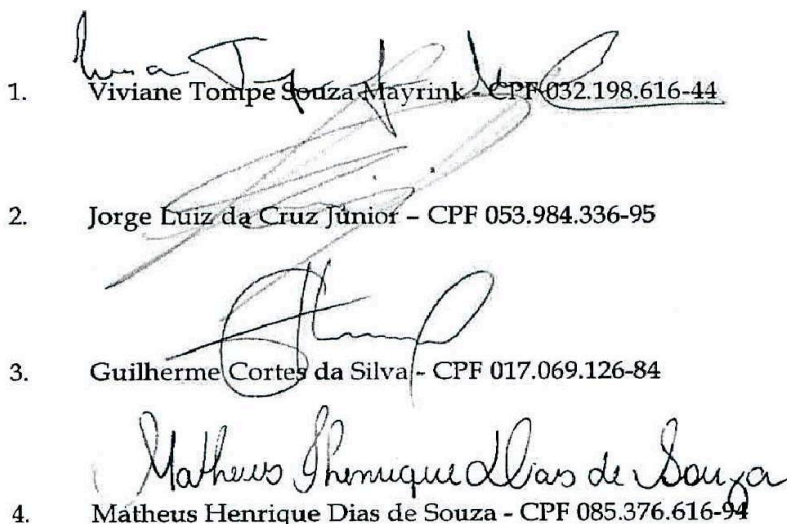 1. Viviane Tompe Souza Mayrink - CPF 032.198.616-44
2. Jorge Luiz da Cruz Júnior – CPF 053.984.336-95
3. Guilherme Cortes da Silva - CPF 017.069.126-84
Matheus Henrique Dias de Souza
4. Matheus Henrique Dias de Souza - CPF 085.376.616-94